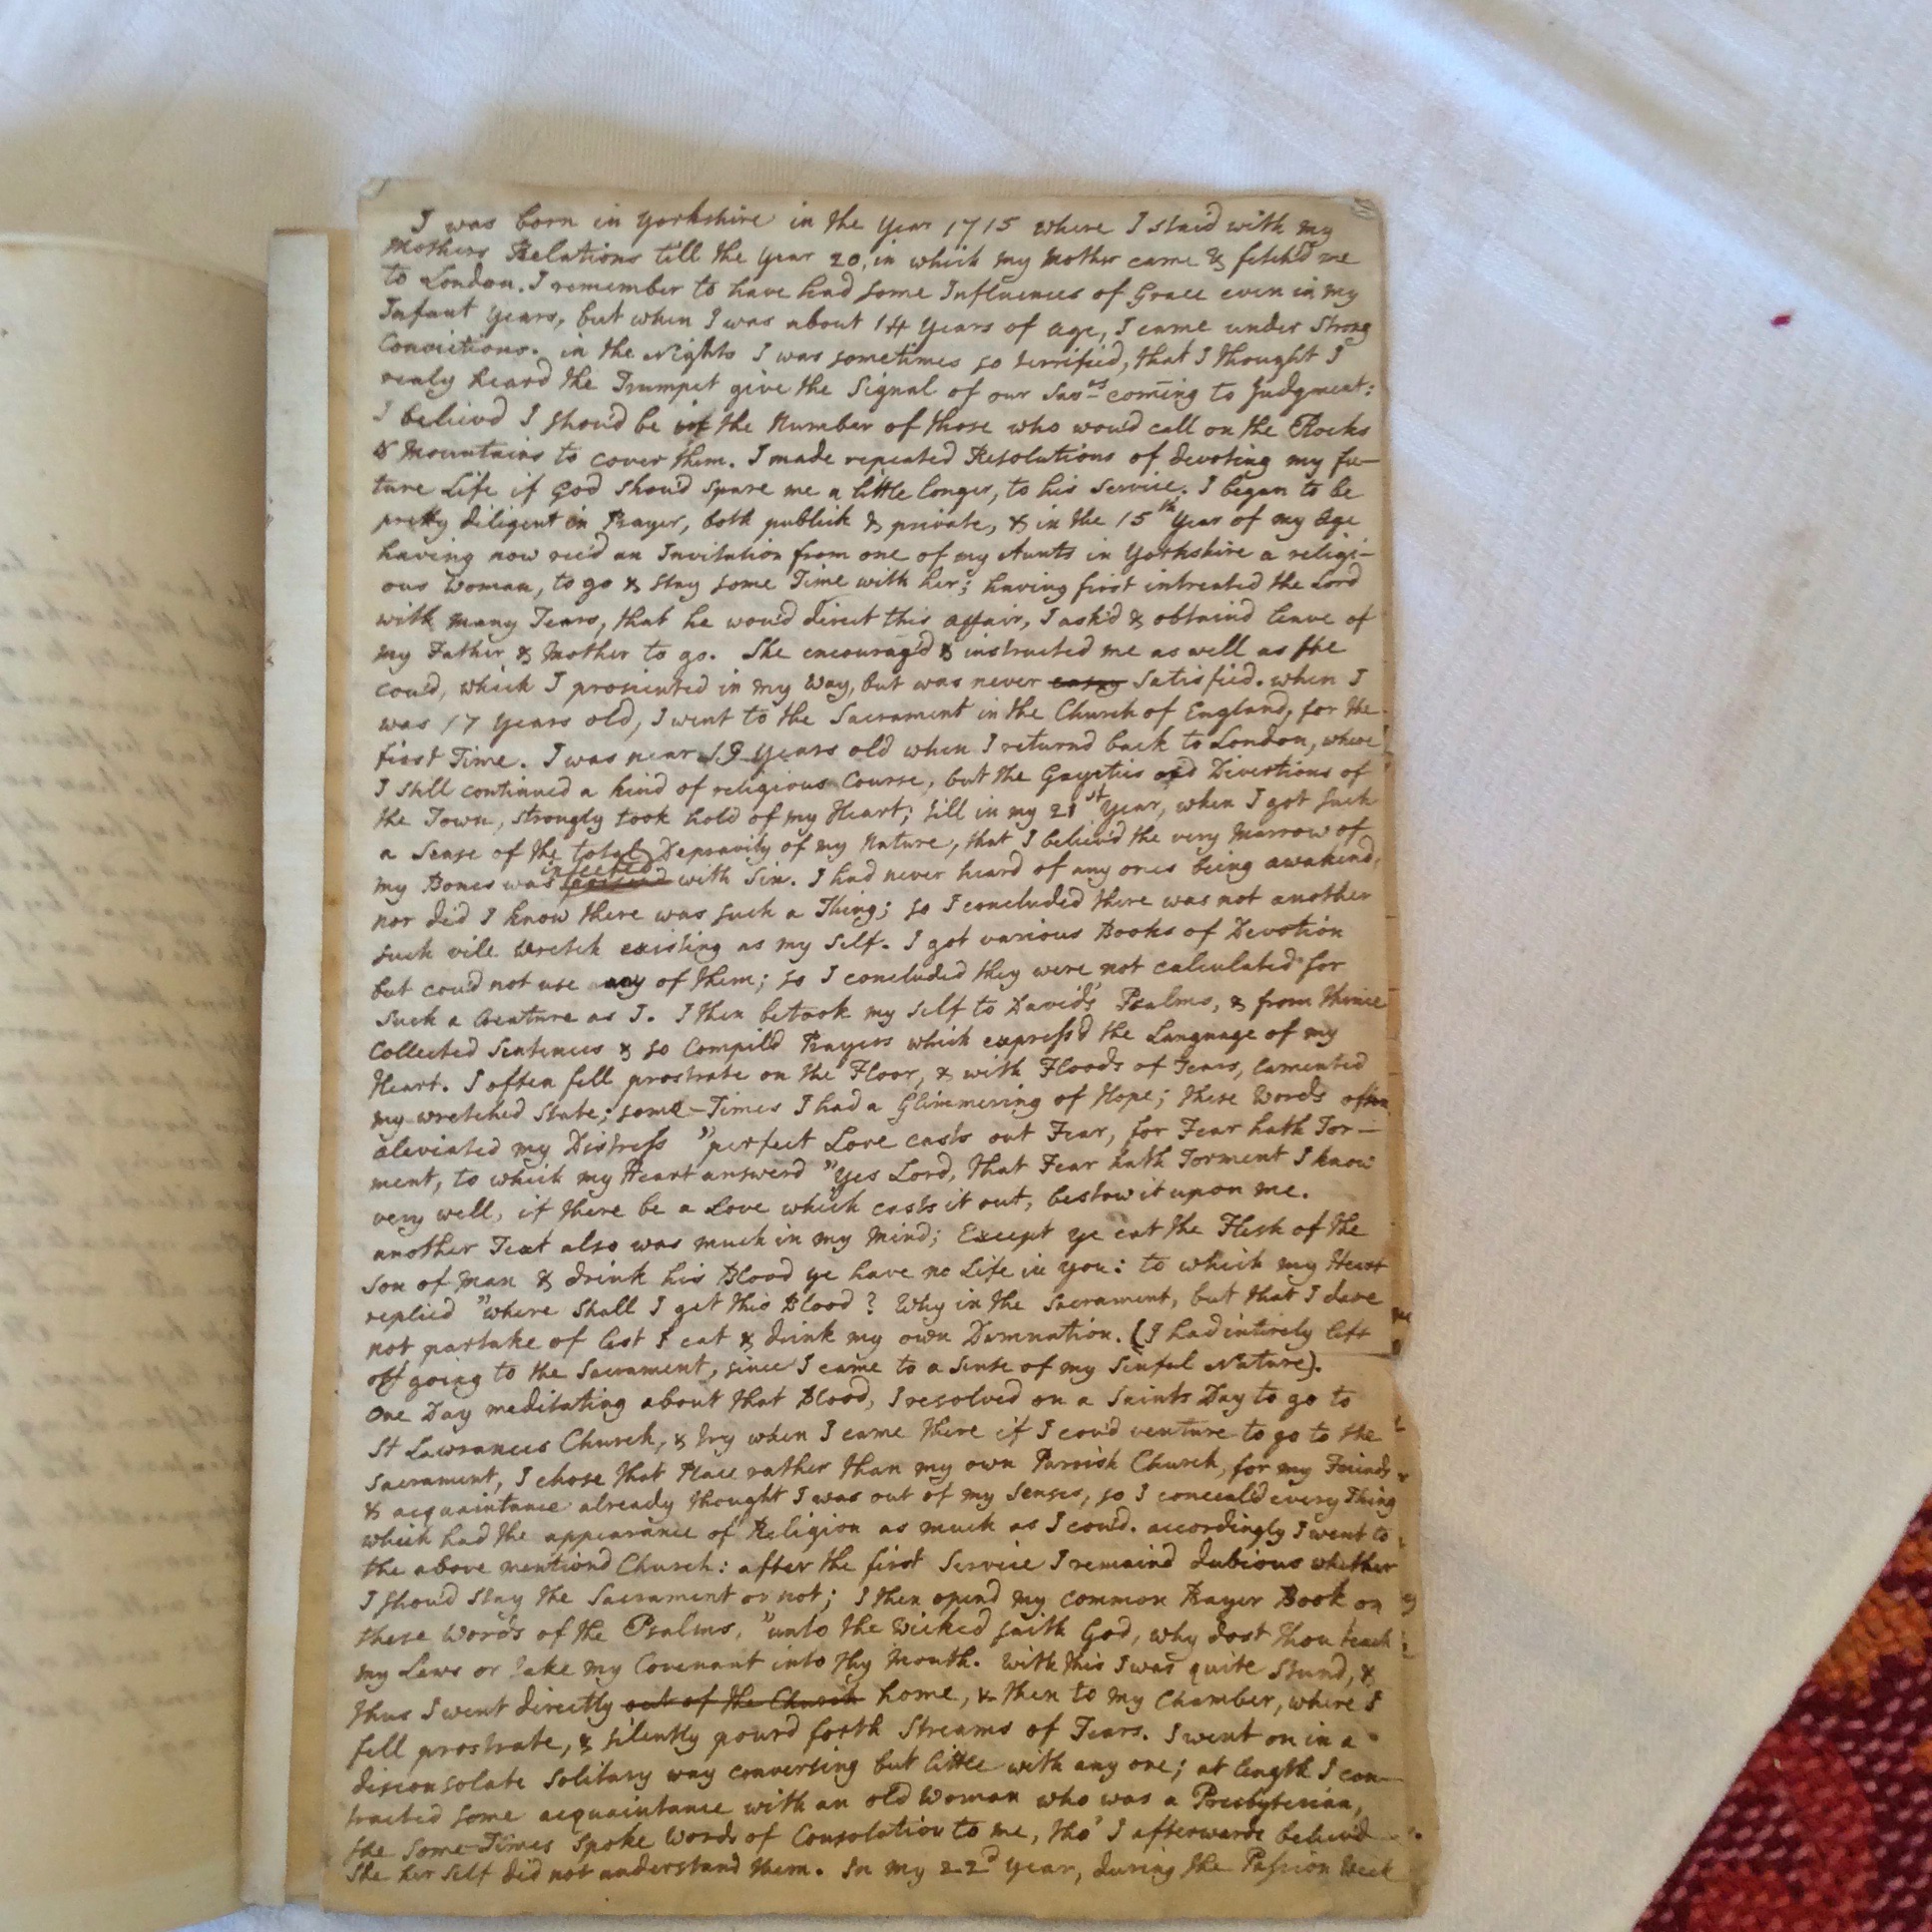 I was born in Yorkshire in the Year 1715 where I staid with my
Mothers Relations till the Year 20, in which my Mother came & fetch'd me
to London. I remember to have had some Influences of Grace even in my
Infant Years, but when I was about 14 Years of age, I came under Strong
Convictions. in the Nights I was sometimes so terrified, that I thought I
realy heard the Trumpet give the Signal of our Savrs coming to Judgment:
I believd I shou'd be of the Number of those who wou'd call on the Rocks
& Mountains to cover them. I made repeated Resolutions of devoting my fu-
ture Life if God shou'd spare me a little longer, to his Service. I began to be
pretty diligent in Prayer, both publick & private, & in the 15th Year of my Age
having now rec'd an Invitation from one of my Aunts in Yorkshire a religi-
ous Woman, to go & stay some Time with her; having first intreated the Lord
with many Tears, that he wou'd direct this affair, I ask'd & obtain'd leave of
my Father & Mother to go. She encourag'd & instructed me as well as she
cou'd, which I prosecuted in my Way, but was never easy Satisfied. when I
was 17 Years old, I went to the Sacrament in the Church of England, for the
first Time. I was near 19 Years old when I returnd back to London, where
I still continued a kind of religious Course, but the Gayeties and Divertions of
the Town, strongly took hold of my Heart; till in my 21st Year, when I got such
a Sense of the total Depravity of my Nature, that I believ'd the very Marrow of
my Bones was infected with Sin. I had never heard of any ones being awakend,
nor did I know there was such a Thing; so I concluded there was not another
such vile Wretch existing as my self. I got various Books of Devotion
but cou'd not use any of them; so I concluded they were not calculated for
such a Creature as I. I then betook my self to David's Psalms, & from thence
Collected Sentences & so Compil'd Prayers which express'd the Language of my
Heart. I often fell prostrate on the Floor, & with Floods of Tears, lamented
my wretched State; some-Times I had a Glimmering of Hope; these Words often
aleviated my Distress "perfect Love casts out Fear, for Fear hath Tor-
ment, to which my Heart answerd "Yes Lord, that Fear hath Torment I know
very well, if there be a Love which casts it out, bestow it upon me.
another Text also was much in my Mind; Except ye eat the Flesh of the
Son of Man & drink his Blood ye have no Life in you: to which my Heart
replied "where Shall I get this Blood? Why in the Sacrament, but that I dare
not partake of lest I eat & drink my own Damnation. (I had intirely left
off going to the Sacrament, since I came to a Sense of my Sinful Nature).
One Day meditating about that Blood, I resolved on a Saints Day to go to
St Lawrances Church, & try when I came there if I cou'd venture to go to the
Sacrament, I chose that Place rather than my own Parrish Church, for my Friends
& acquaintance already thought I was out of my Senses, so I conceald every Thing
which had the appearance of Religion as much as I cou'd. accordingly I went to
the above mentiond Church: after the first Service I remaind dubious whether
I shou'd stay the Sacrament or not; I then opend my Common Prayer Book on
these Words of the Psalms, "unto the Wicked saith God, why dost thou teach
my Laws or take my Covenant into thy Mouth. With this I was quite Stund, &
thus I went directly out of the Church home, & then to my Chamber, where I
fell prostrate, & silently pourd forth Streams of Tears. I went on in a
disconsolate Solitary way conversing but little with any one; at length I con-
tracted some acquaintance with an old Woman who was a Presbyterian,
she some-Times spoke Words of Consolation to me, tho' I afterwards believd
She her self did not understand them. In my 22d Year, during the Passion Week